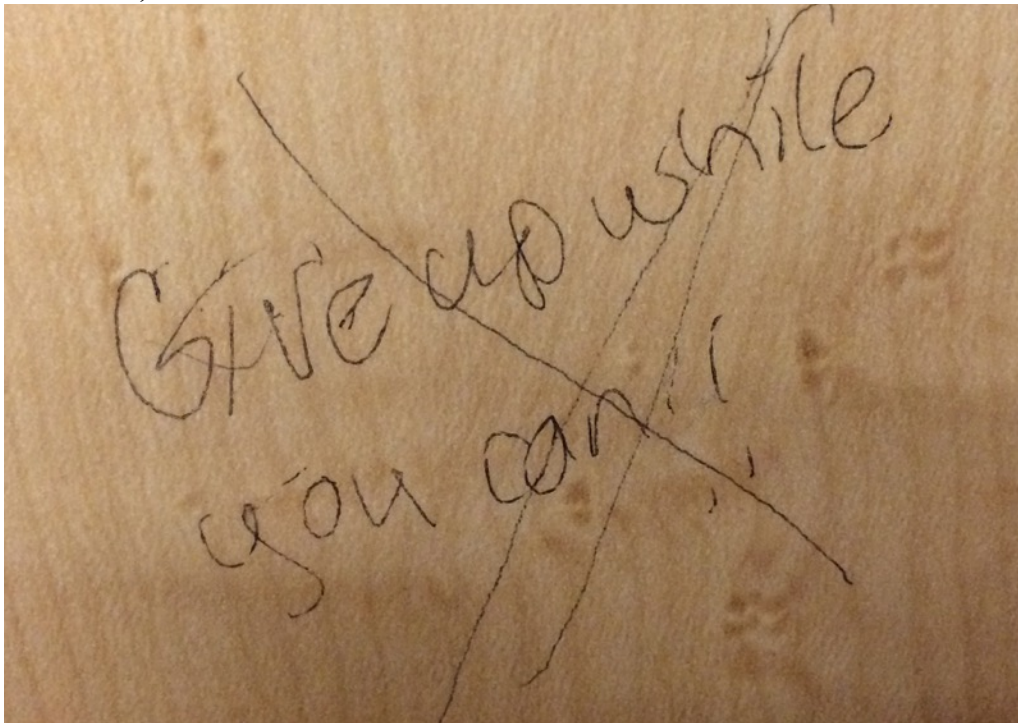 Give up while
you can!!